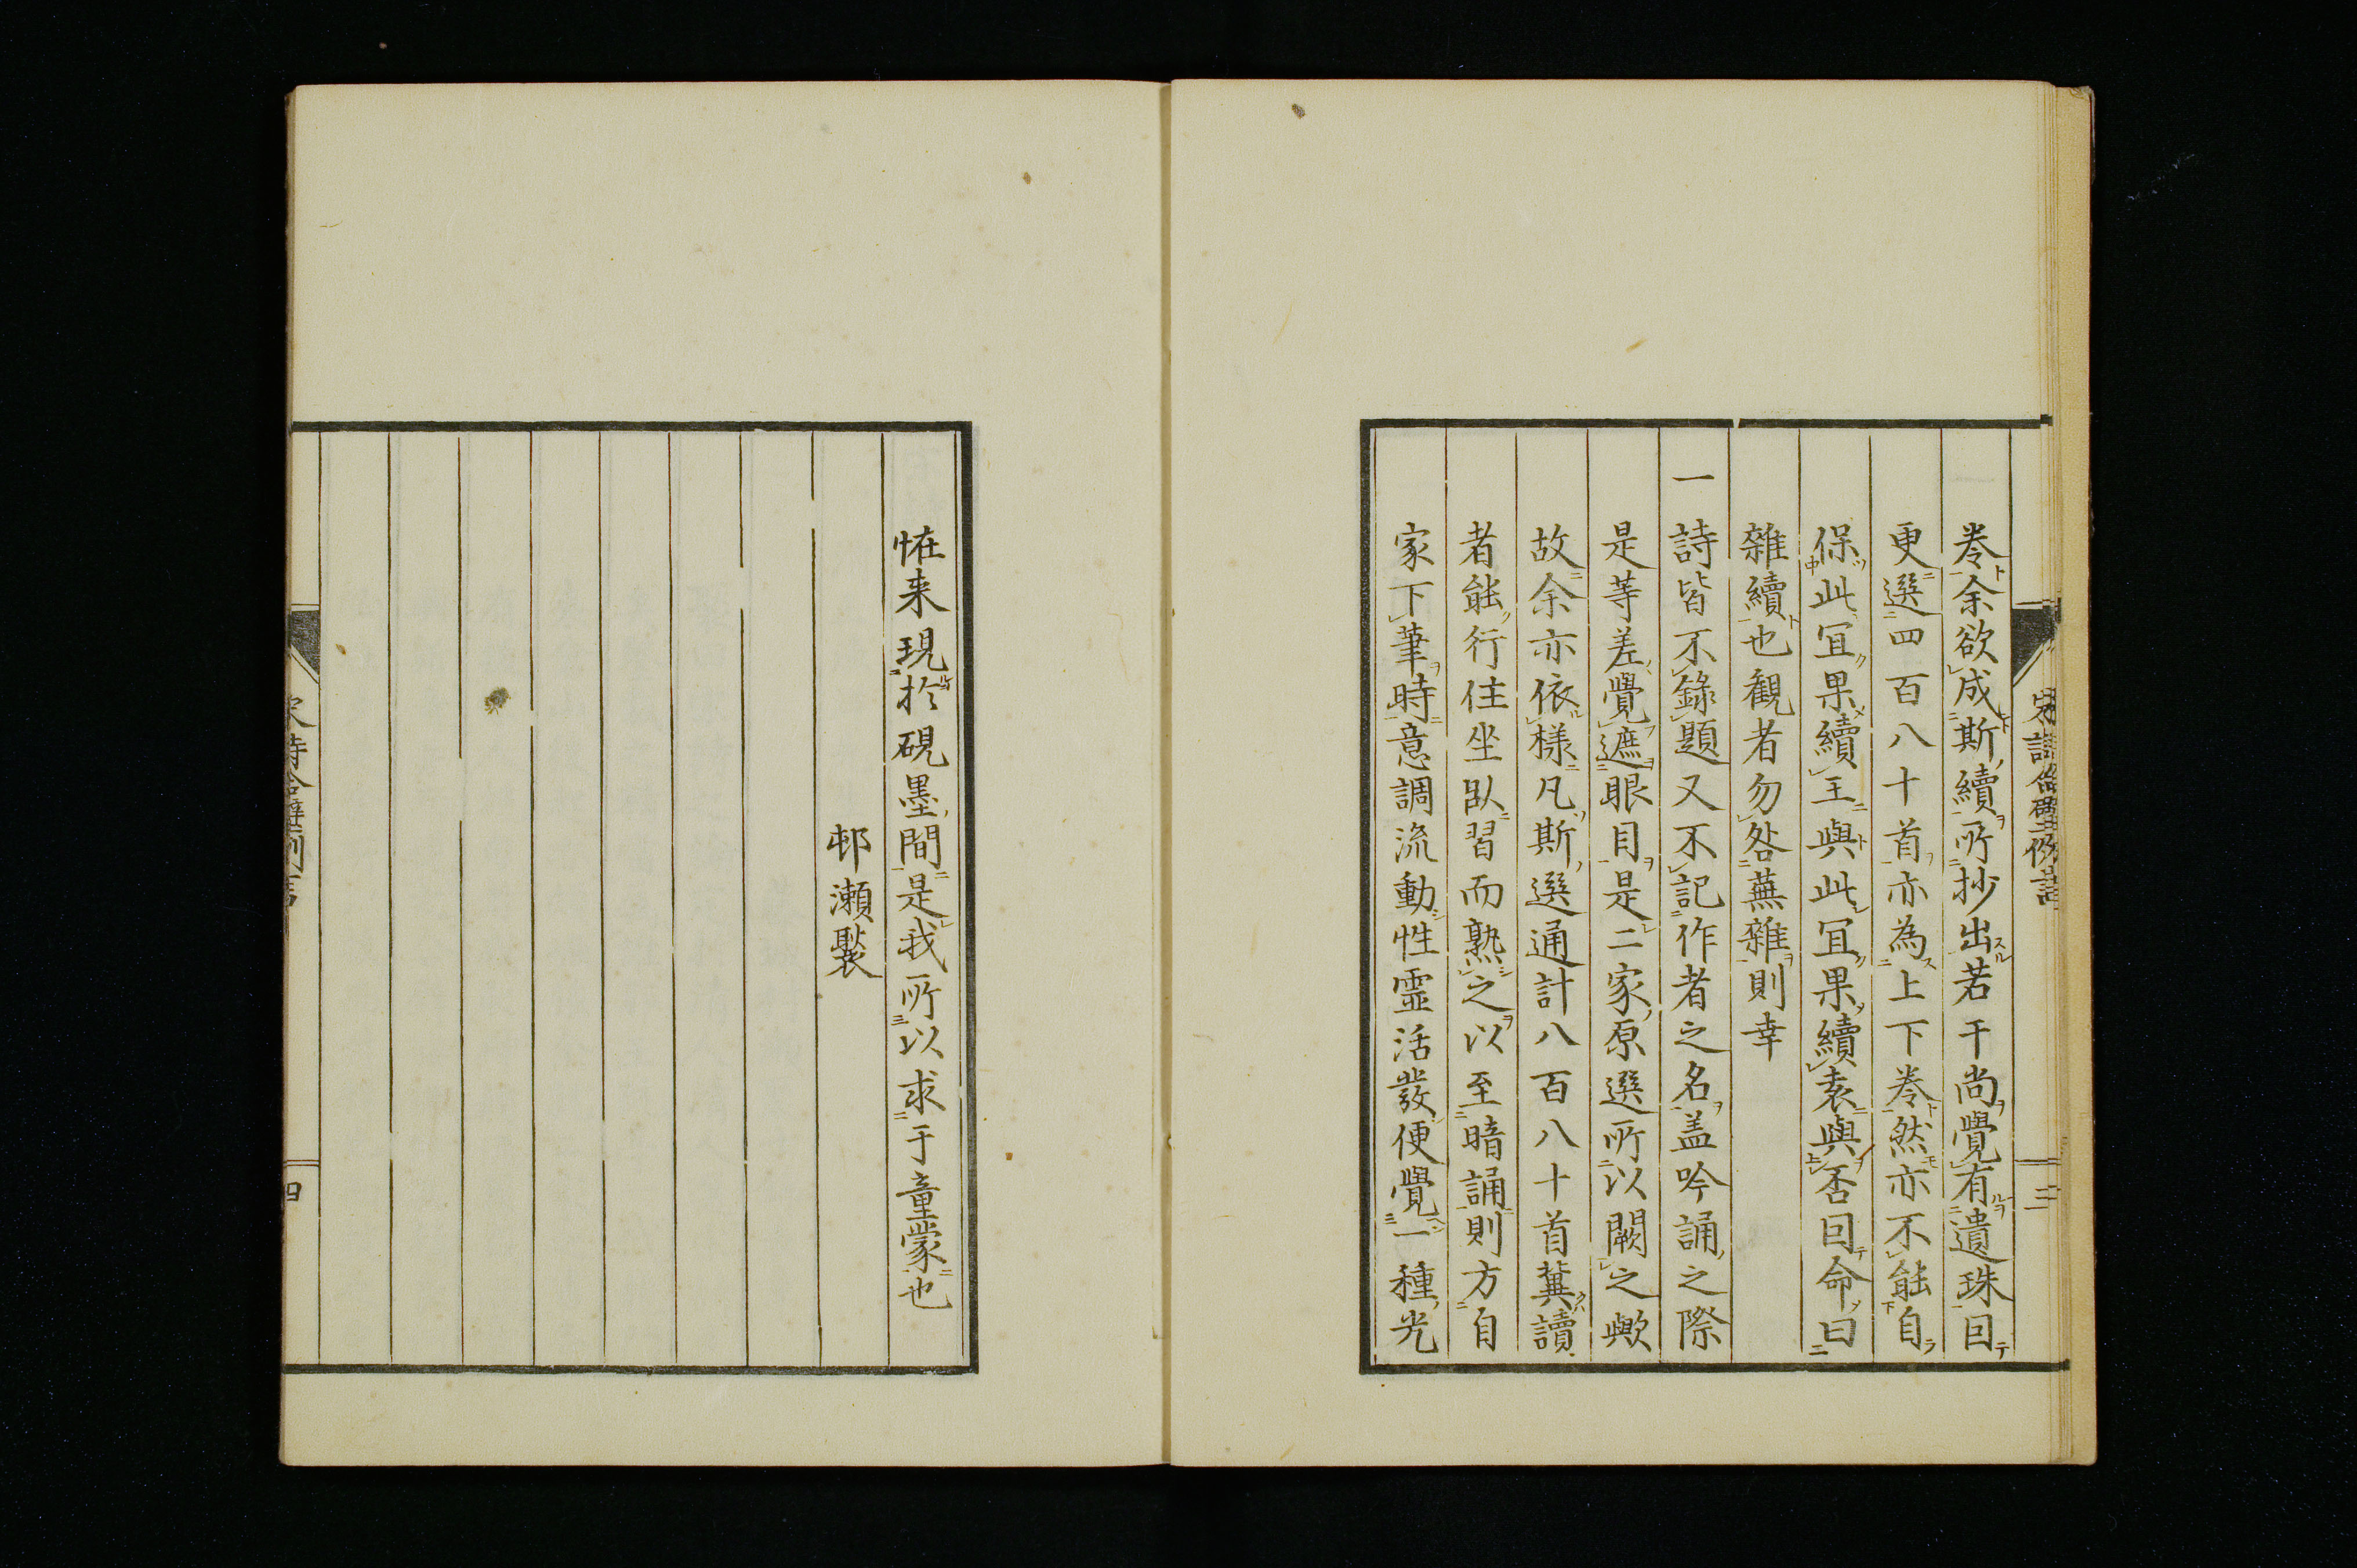 卷余欲成斯續所抄出若干尚覺有遺珠囙
更選四百八十首亦為上下卷然亦不能自
保此冝果續王與此冝果續袁與否囙命曰
雜續也觀者勿咎蕪雜則幸
一詩皆不錄題又不記作者之名盖吟誦之際
是等差覺遮眼目是二家原選所以闕之歟
故余亦依樣凡斯選通計八百八十首冀讀
者能行住坐臥習而熟之以至暗誦則方自
家下筆時意調流動性霊活發便覺一種光
恠来現扵硯墨間是我所以求于童蒙也
邨瀨褧
宋詩合璧例言
三
四